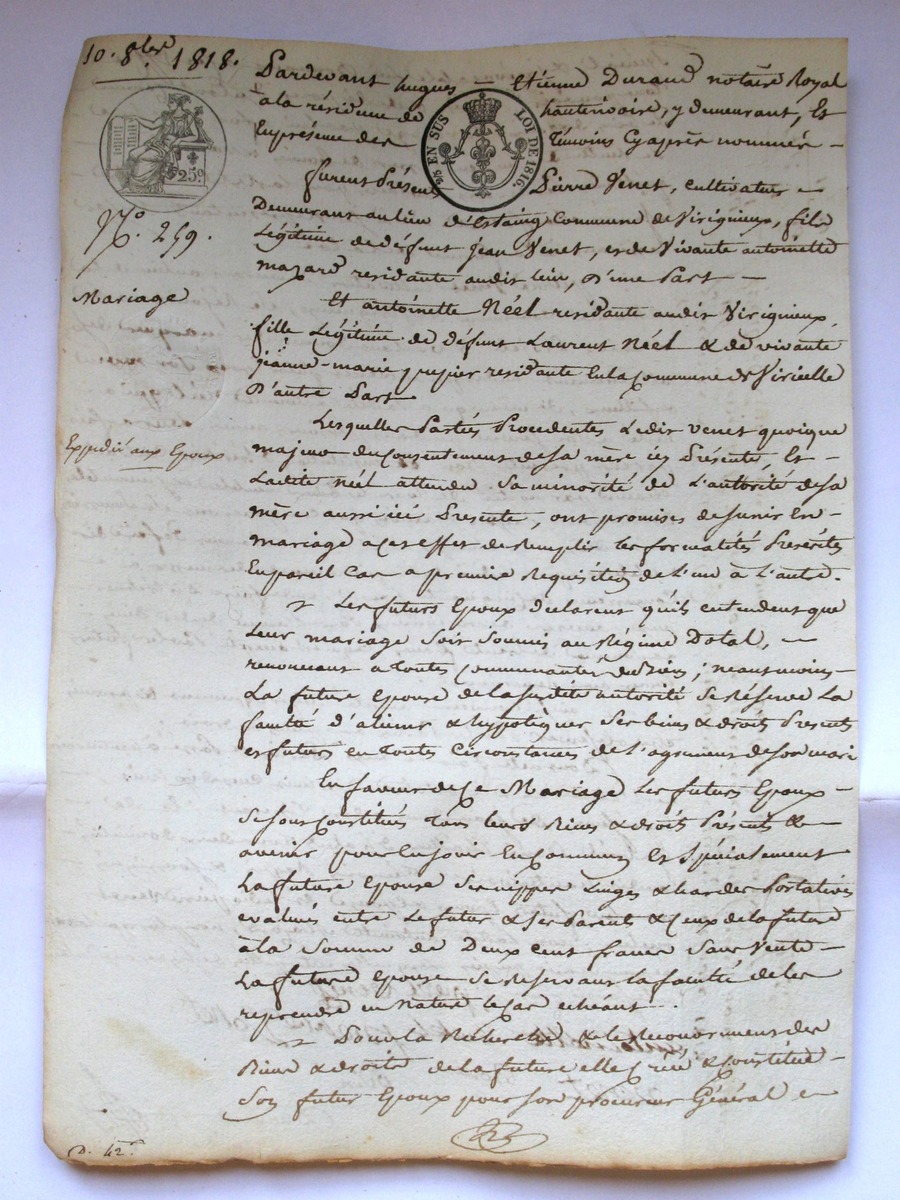 10. 8bre. 1818.
25c
2/5 EN SUS LOI DE 1816.
N.o 259.
Mariage
Expedié aux Epoux
Pardevant hugues – Etienne Durand notaire Royal
à la résidence de hauterivoire, y demeurant, Et
En présence des Témoins Cy après nommés –
furent Présents Pierre Venet, cultivateur –
Demeurant au lieu d'Estaing Commune de Virigneux, fils
Légitime de défunt jean Venet, et de Vivante antoinette
mazard residante audit lieu, d'une Part –
Et antoinette Néel residante audit Virigneux,
fille Légitime de défunt Laurent Néel & de vivante
jeanne-marie pupier residante En la Commune de Viricelle
D'autre Part
Lesquelles Parties Procedentes Ledit Venet quoique
majeur du Consentement de sa mère icy Présente, Et –
Ladite Néel attendu sa minorité de L'autorité de sa
mère aussi ici Presente, ont promises de s'unir En –
mariage a cet effet de Remplir les formalités PresCrites
En pareil Cas a premiere Requisition de L'un à L'autre.
Les futurs Epoux declarent qu'ils entendent que
Leur mariage soit soumis au Régime Dotal, –
renoncant a toutes Communautés de Biens; neantmoins –
La future epouse de la susdite autorité se Réserve La
faculté d'aliener & hypotéquer ses biens & droits Presents
et futurs en toutes Circonstances de l'agrement de son mari
En faveur de Ce Mariage Les futurs Epoux –
se sont Constitués Tous leurs Biens & droits Présents &
avenir pour En jouir En Commun Et spécialement
La future Epouse ses nippes Linges & hardes Portatives
evalués entre Le futur & ses Parents & Ceux de la future
à la Somme de Deux Cent francs Sans Vente –
La future epouse se reservant La faculté de les
reprendre en Nature le Cas echéant...
Pour la Recherche & le Recouvrement des
Biens & droits de la future elle Créé & Constitue –
Son futur Epoux pour son procureur Général &
D. 42c